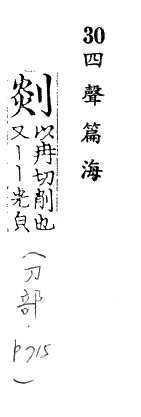 30 四聲篇海
剡 以冉切削也
又丨丨光皃
(刀部·p715)